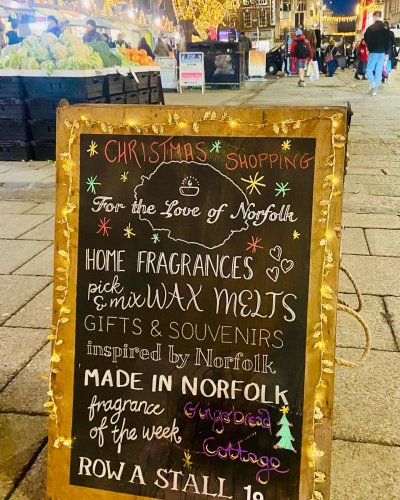 CHRISTMAS SHOPPING
For the Love of Norfolk
HOME FRAGRANCES
pick & mix WAX MELTS
GIFTS & SOUVENIRS
inspired by Norfolk
MADE IN NORFOLK
fragrance of the week Gingerbread Cottage
ROW A STALL 19